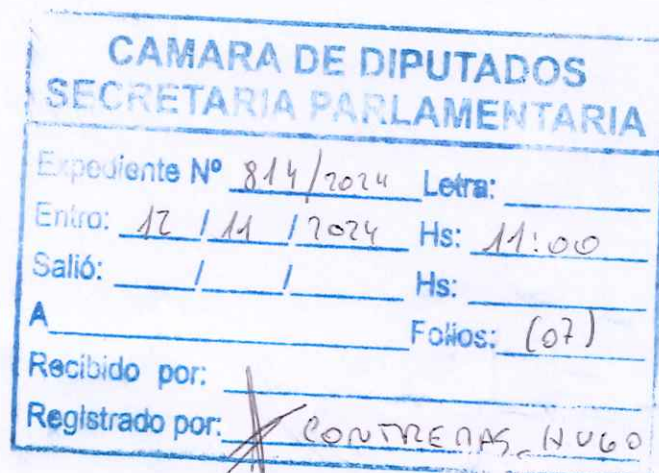 CAMARA DE DIPUTADOS
SECRETARIA PARLAMENTARIA
Expediente Nº 814/2024 Letra:
Entro: 12 / 11 / 2024 Hs: 11:00
Salió: / / Hs:
A Folios: (07)
Recibido por:
Registrado por: CONTRERAS, HUGO